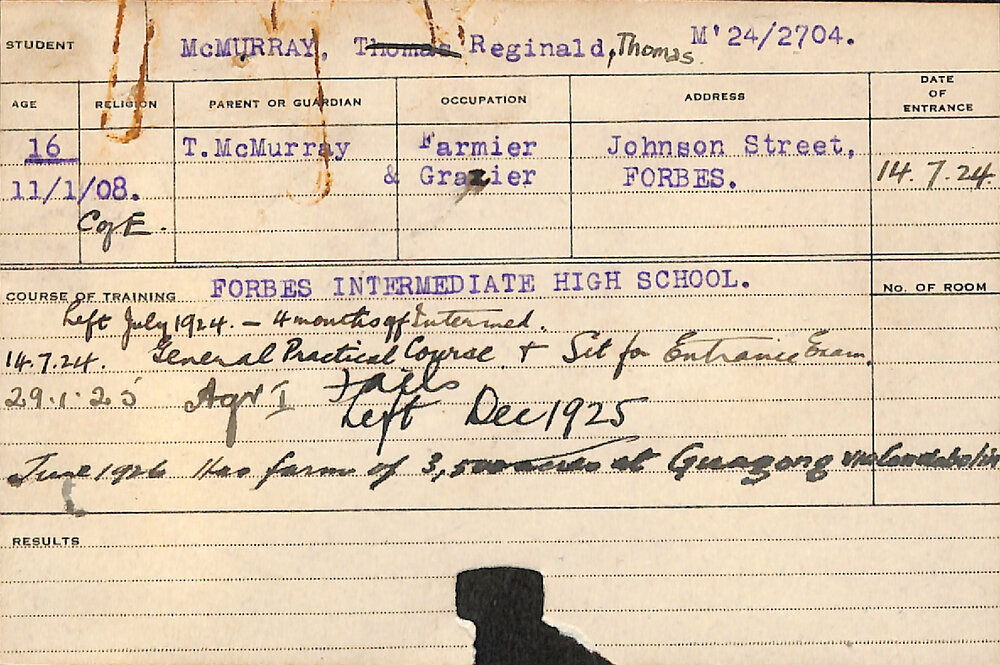 STUDENT McMURRAY, Thomas Reginald, Thomas. M'24/2704.
AGE RELIGION PARENT OR GUARDIAN OCCUPATION ADDRESS DATE OF ENTRANCE
16 T.McMurray Farmier Johnson Street,
11/1/08. & Grazier FORBES. 14.7.24.
C of E.
FORBES INTERMEDIATE HIGH SCHOOL.
COURSE OF TRAINING No. OF ROOM
Left July 1924. – 4 months off Intermed.
14.7.24. General Practical Course + Sit for Entrance Exam.
29.1.25 Agr I Fails
Left Dec 1925
June 1926 Has farm of 3,500 acres at Gunagong via Condobolin
RESULTS